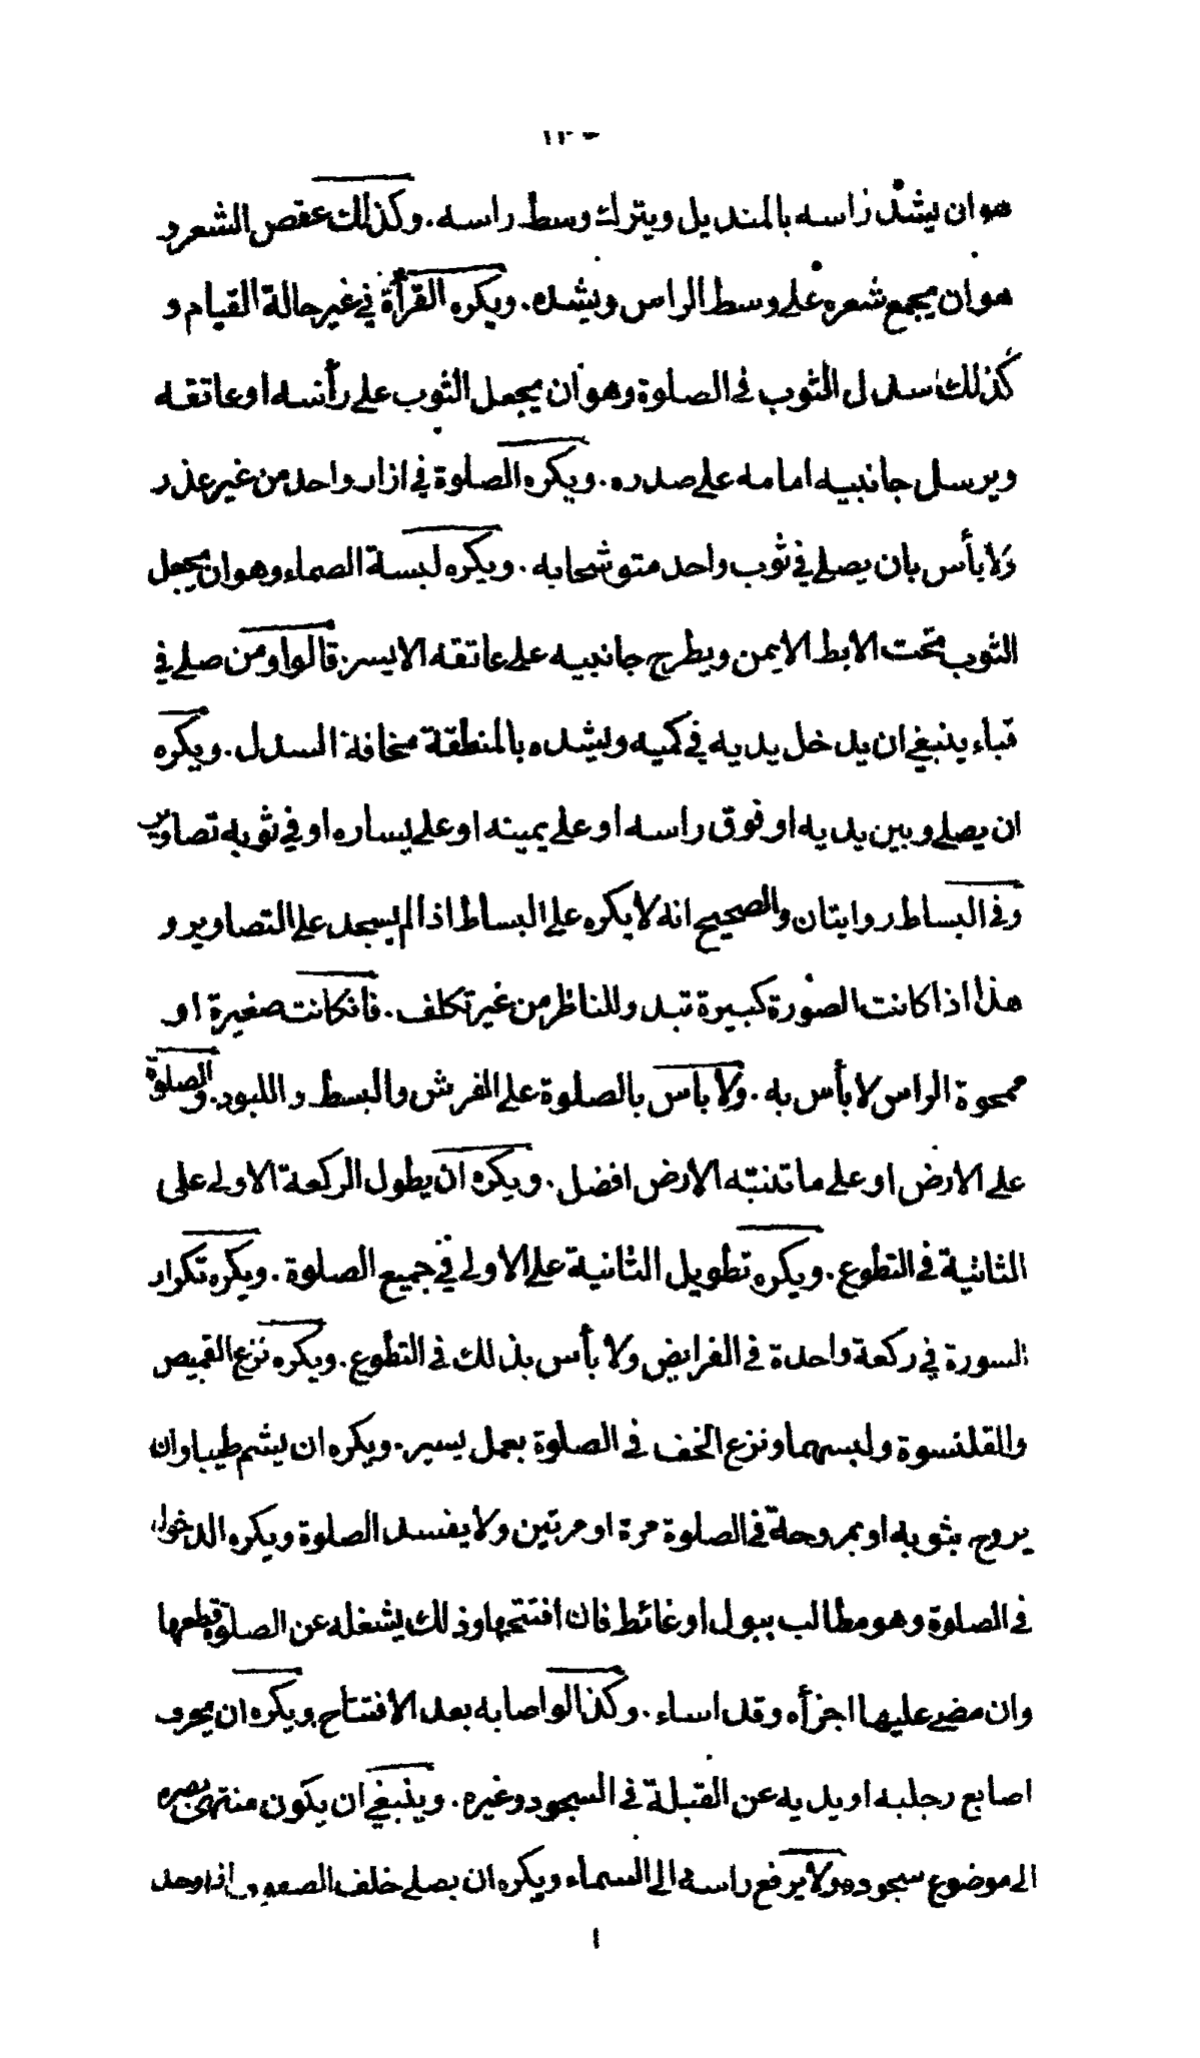 ١٢٠
هو ان يشد راسه بالمنديل ويترك وسط راسه. وكذلك عقص الشعر و
هو ان يجمع شعره على وسط الراس ويشده. ويكره القرأة في غير حالة القيام و
كذلك سدل الثوب في الصلوة وهو ان يجعل الثوب على رأسه او عاتقه
ويرسل جانبيه امامه على صدره. ويكره الصلوة في ازار واحد من غير عذر
ولا بأس بان يصلي في ثوب واحد متوشحا به. ويكره لبسة الصماء وهو ان يجعل
الثوب تحت الابط الايمن ويطرح جانبيه على عاتقه الايسر. قالوا ومن صلى في
قباء ينبغي ان يدخل يديه في كميه ويشده بالمنطقة مخافة السدل. ويكره
ان يصلي وبين يديه او فوق راسه او على يمينه او على يساره او في ثوبه تصاوير
وفي البساط روايتان والصحيح انه لا يكره على البساط اذا لم يسجد على التصاوير و
هذا اذا كانت الصورة كبيرة تبدو للناظر من غير تكلف. فانكانت صغيرة او
ممحوة الراس لا بأس به. ولا باس بالصلوة على الفرش والبسط و اللبود. والصلوة
على الارض او على ما تنبته الارض افضل. ويكره ان يطول الركعة الاولى على
الثانية في التطوع. ويكره تطويل الثانية على الاولى في جميع الصلوة. ويكره تكرار
السورة في ركعة واحدة في الفرايض ولا بأس بذلك في التطوع. ويكره نزع القميص
والقلنسوة ولبسهما ونزع الخف في الصلوة بعمل يسير. ويكره ان يشم طيبا وان
يروح بثوبه او بمروحة في الصلوة مرة او مرتين ولا يفسد الصلوة ويكره الدخول
في الصلوة وهو مطالب ببول او غائط فان افتتحها وذلك يشغله عن الصلوة قطعها
وان مضى عليها اجزأه وقد اساء. وكذا لو اصابه بعد الافتتاح. ويكره ان يحرف
اصابع رجليه او يديه عن القبلة في السجود وغيره. وينبغي ان يكون منتهى بصره
الى موضوع سجوده ولا يرفع راسه الى السماء ويكره ان يصلي خلف الصفوف اذا وجد
ا